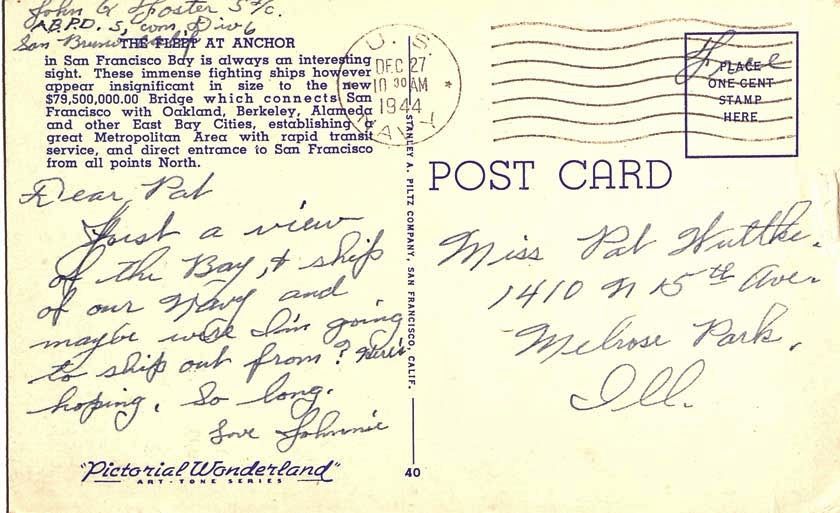 John G Foster S 2/c.
A.B.P.D. S, com, Div 6
San Bruno, Calif
THE FLEET AT ANCHOR
in San Francisco Bay is always an interesting
sight. These immense fighting ships however
appear insignificant in size to the new
$79,500,000.00 Bridge which connects San
Francisco with Oakland, Berkeley, Alameda
and other East Bay Cities, establishing a
great Metropolitan Area with rapid transit
service, and direct entrance to San Francisco
from all points North.
Dear Pat
Just a view
of the Bay, & ship
of our Navy and
maybe were I'm going
to ship out from? Here's
hoping. So long.
Love Johnnie
"Pictorial Wonderland"
ART-TONE SERIES
STANLEY A. PILTZ COMPANY, SAN FRANCISCO, CALIF.
40
U.S.
DEC 27
10 30 AM
1944
NAVY
Free
PLACE
ONE CENT
STAMP
HERE
POST CARD
Miss Pat Wuttke.
1410 N 15th Aven
Melrose Park,
Ill.